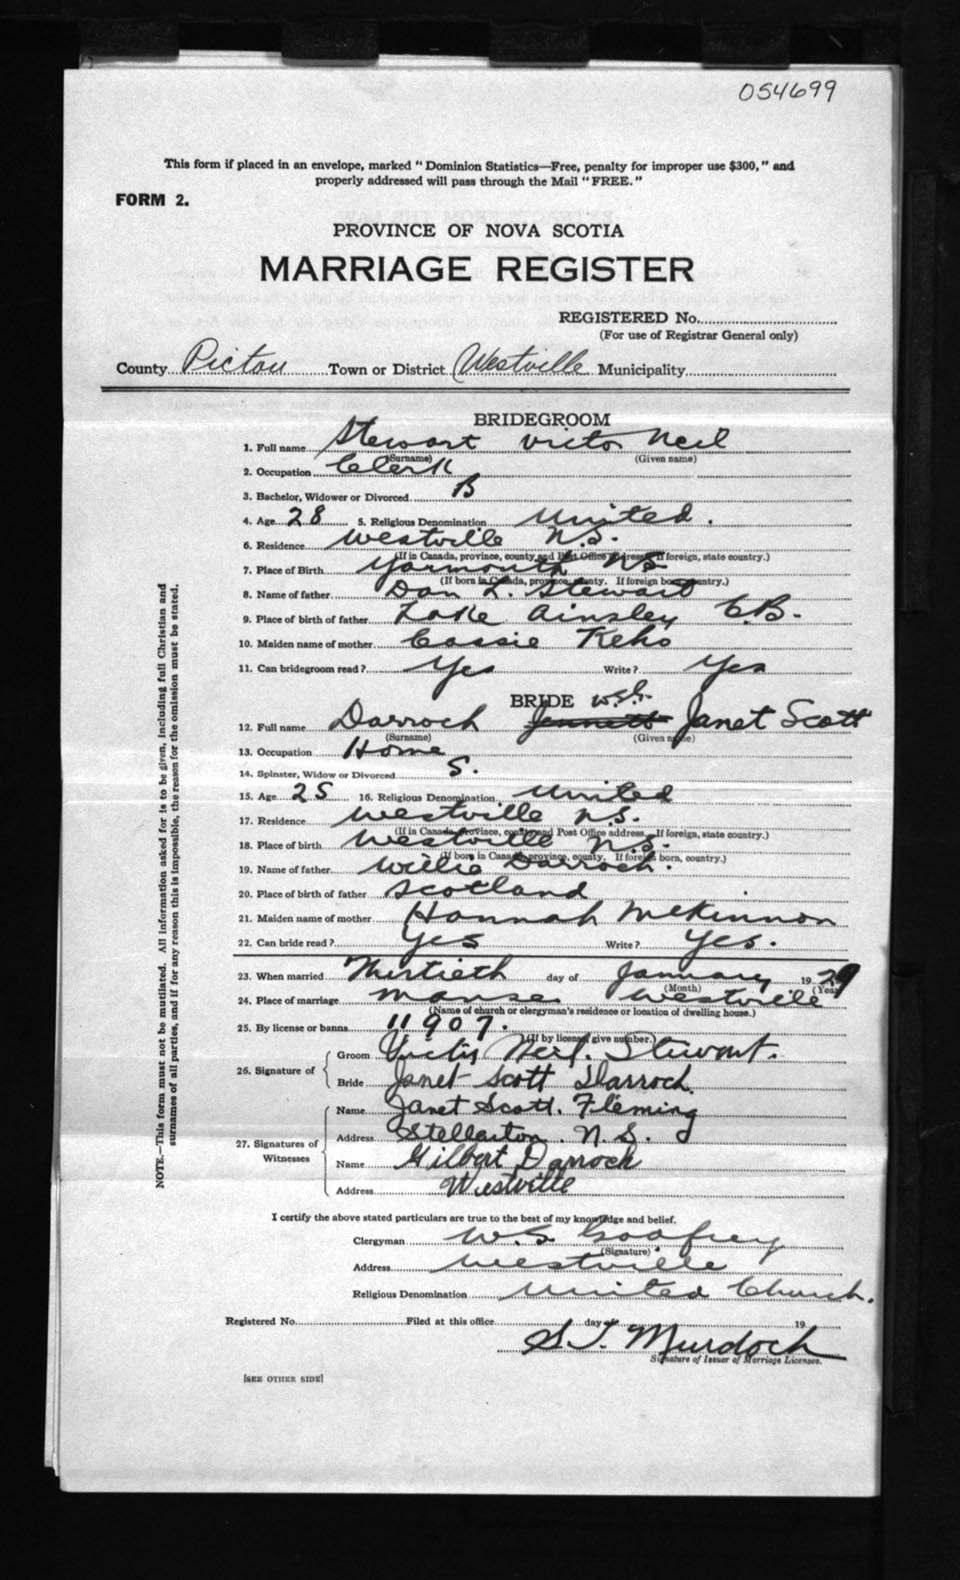 054699
This form if placed in an envelope, marked "Dominion Statistics—Free, penalty for improper use $300," and
properly addressed will pass through the Mail "FREE."
FORM 2.
PROVINCE OF NOVA SCOTIA
MARRIAGE REGISTER
REGISTERED No.
(For use of Registrar General only)
County Pictou Town or District Westville Municipality
BRIDEGROOM
1. Full name Stewart Victor Neil
(Surname) (Given name)
2. Occupation Clerk
3. Bachelor, Widower or Divorced B
4. Age 28 5. Religious Denomination United.
6. Residence Westville N.S.
(If in Canada, province, county and Post Office address. If foreign, state country.)
7. Place of Birth Yarmouth NS
(If born in Canada, province, county. If foreign born, country.)
8. Name of father Dan L. Stewart
9. Place of birth of father Lake Ainsley C.B.
10. Maiden name of mother Cassie
11. Can bridegroom read? Yes Write? Yes
BRIDE
12. Full name Darroch Jennett Janet Scott
(Surname) (Given name)
13. Occupation Home
14. Spinster, Widow or Divorced S.
15. Age 25 16. Religious Denomination United
17. Residence Westville N.S.
(If in Canada, province, county and Post Office address. If foreign, state country.)
18. Place of birth Westville N.S.
(If born in Canada, province, county. If foreign born, country.)
19. Name of father Willie Darroch.
20. Place of birth of father Scotland
21. Maiden name of mother Hannah McKinnon
22. Can bride read? Yes Write? Yes.
23. When married Thirtieth day of January 1929
(Month) (Year)
24. Place of marriage Manse Westville
(Name of church or clergyman's residence or location of dwelling house.)
25. By license or banns 11907.
(If by license, give number.)
26. Signature of
Groom Victor Neil Stewart.
Bride Janet Scott Darroch
27. Signatures of Witnesses
Name Janet Scott. Fleming
Address Stellarton. N.S.
Name Gilbert Darroch
Address Westville
I certify the above stated particulars are true to the best of my knowledge and belief.
Clergyman W.S. Godfrey
(Signature)
Address Westville
Religious Denomination United Church.
Registered No. Filed at this office day of 19
S.T. Murdoch
Signature of Issuer of Marriage Licenses.
[SEE OTHER SIDE]
NOTE.—This form must not be mutilated. All information asked for is to be given, including full Christian and
surnames of all parties, and if for any reason this is impossible, the reason for the omission must be stated.